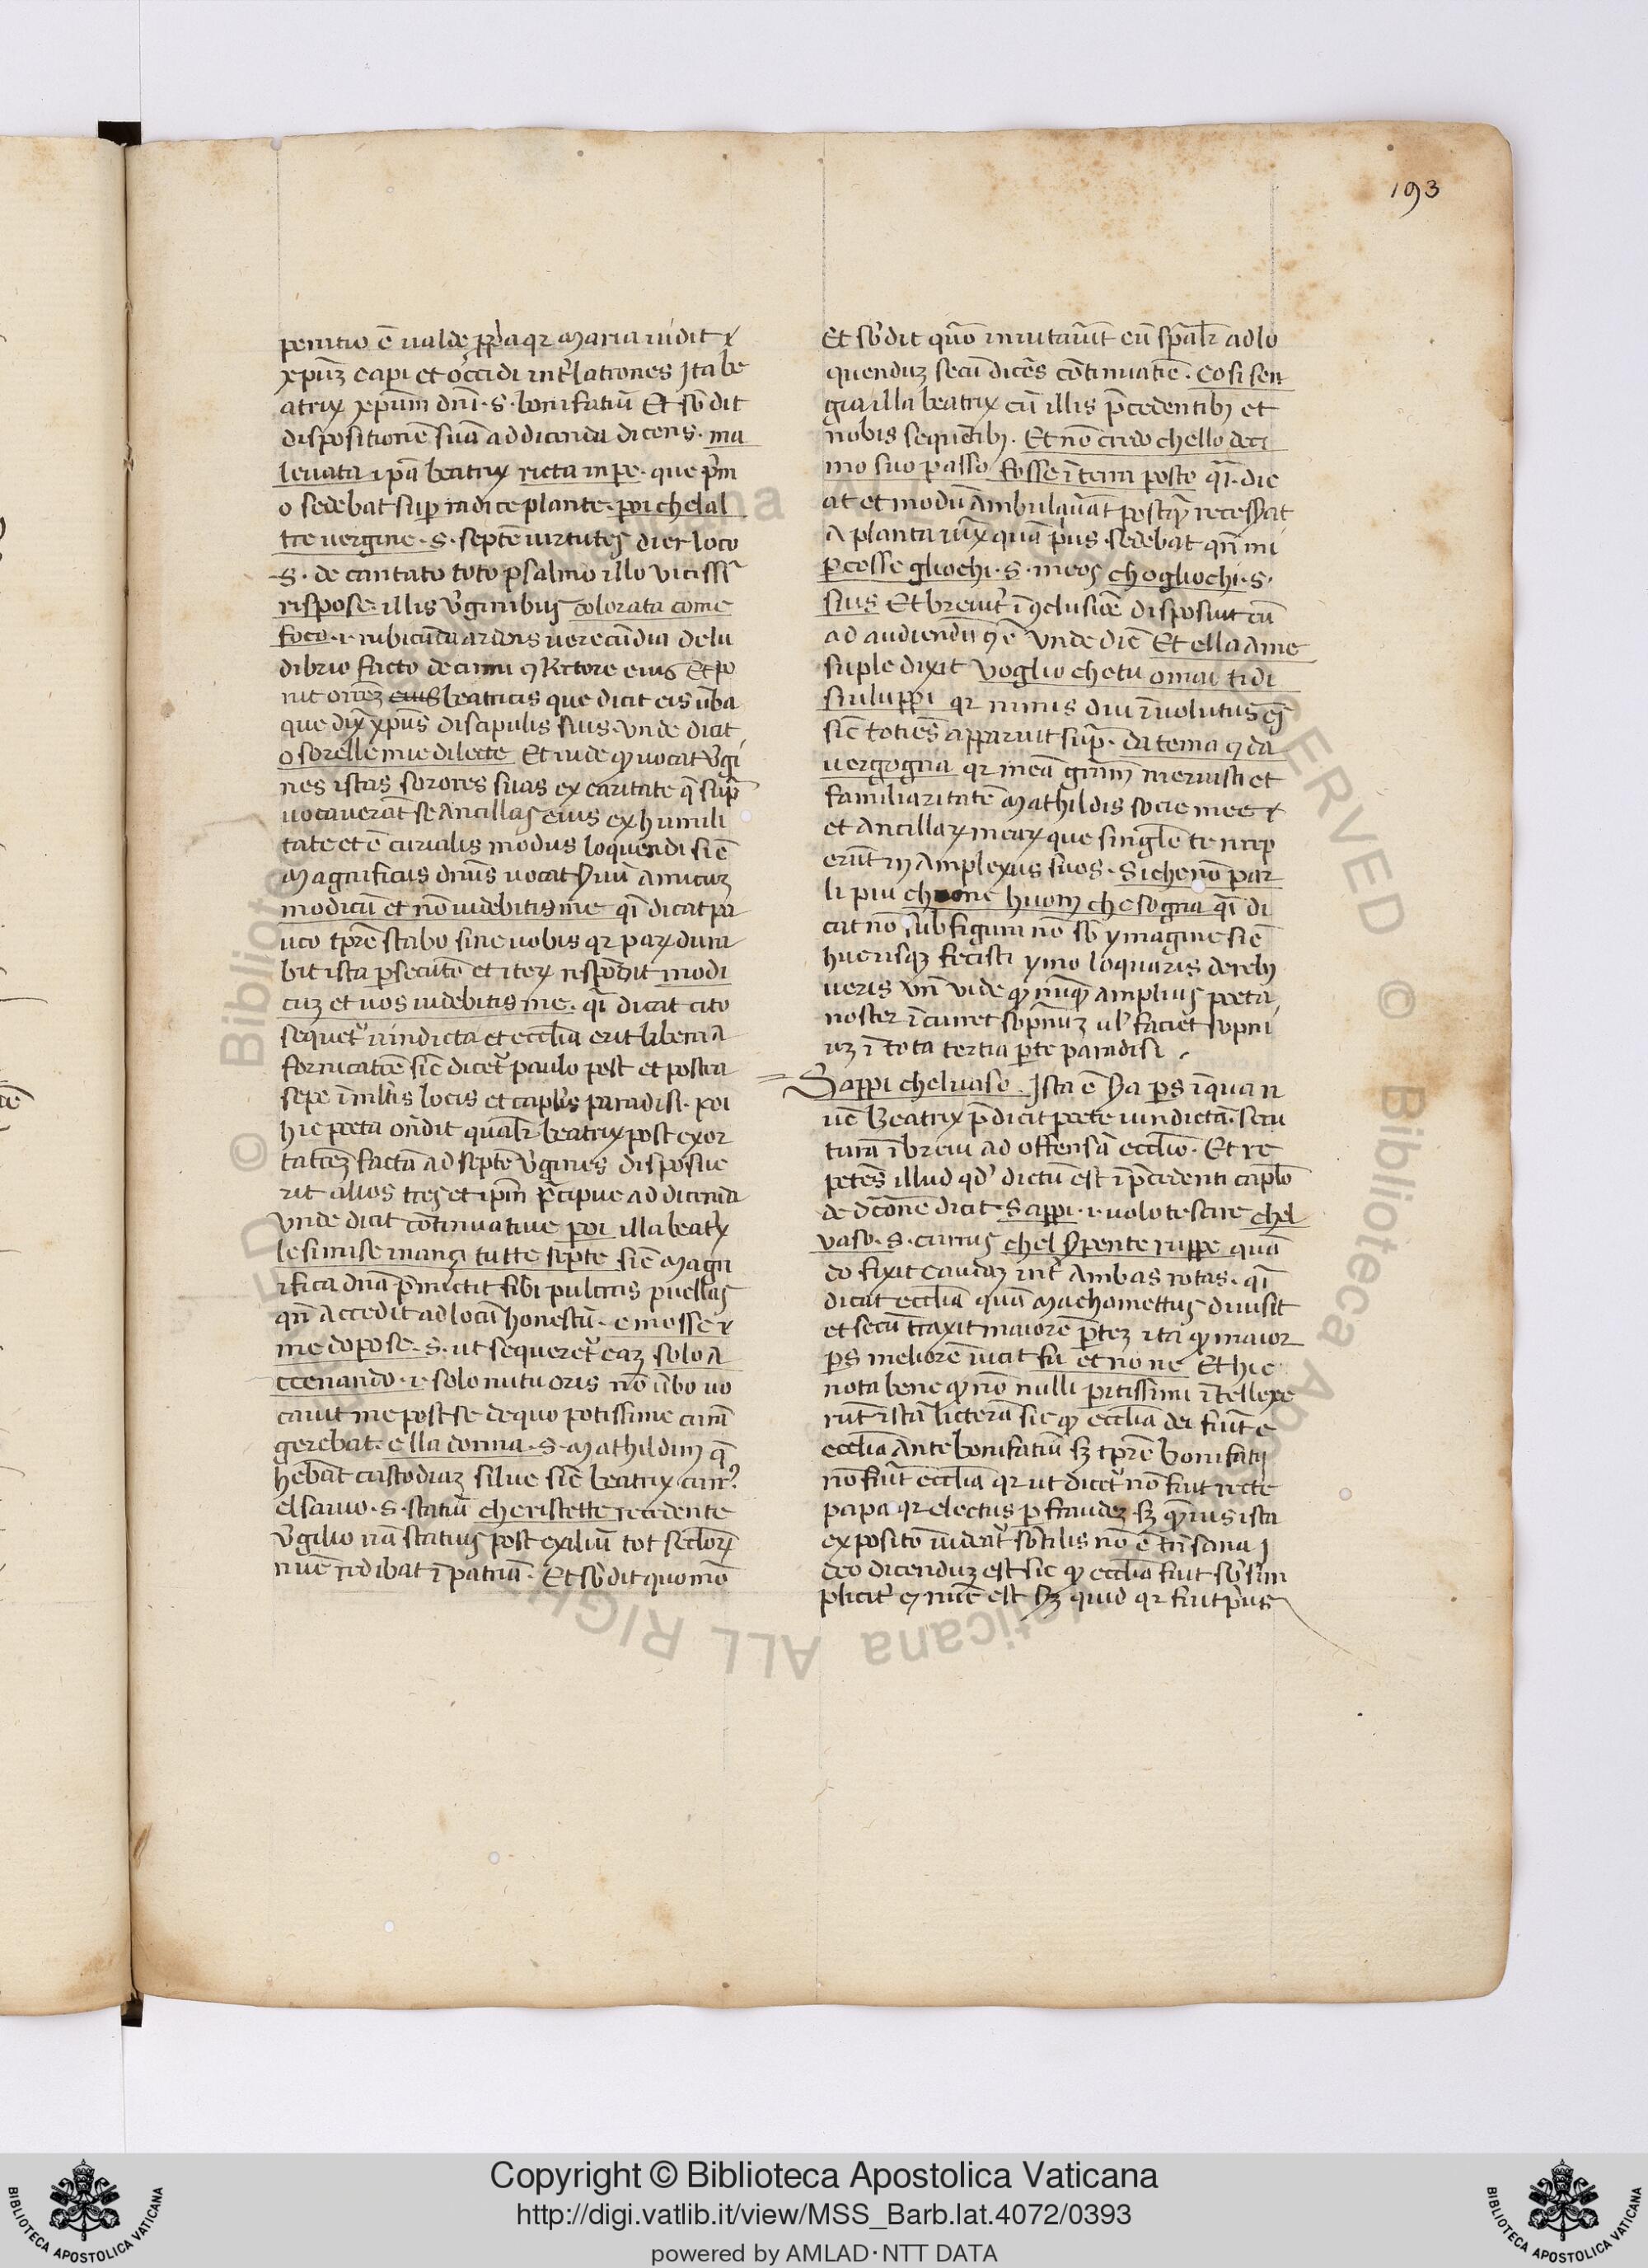 193
penitio ē ualde ꝓpria qr maria uidit ⁊
xp̄uꝫ capi et occidi int̉ latrones Ita be
atrix xp̄um dn̄i · S · bonifatiū Et sb̉dit
dispositionē suā ad dicenda dicens · ma
leuata ipa beatrix ricta in pe · que p̉m
o sedebat suꝑ radice plante · poi che lal
tre uergine · S · septē uirtutes dier loco
S · de cantato toto psalmo illo
rispose · illis v̉ginibus colorata come
foco · i · rubicūda ardens uerecūdia de lu
dibrio facto de curru ꝯ Rectore eius Et po
nit or̄oeꝫ eius beatricis que dicit eis ūba
que dix̄ xp̄us discipulis suis · vnde dicit
o sorelle mie dilecte Et uide qꝫ uocat v̉gi
nes istas sorores suas ex caritate q̄ sup̄
uocauerāt se Ancillas eius ex humili
tate et ē curialis modus loquendi sic̄
Magnificus dn̄us uocat suū amicuꝫ
modicū et nō uidebitis me qī dicat pa
uco tp̄re stabo sine uobis qr paꝝ dura
bit ista ꝑsecutō et iteꝝ respōdit modi
cuꝫ et uos uidebitis me · qī dicat cito
sequet̉ uindicta et eccl̄ia erit libera A
fornicatōe sic̄ dicet̉ paulo post et postea
sepe ī mltis locis et capl̄is paradisi · poi
hic poeta on̄dit qualr̄ beatrix post exor
tatōeꝫ factā ad septē v̉gines disposue
rit alios tres et ipm̄ p̄cipue ad dicenda
vnde dicit contīnuatiue poi illa beat̉x
le si mise inançi tutte septe sic̄ magn
ifica dn̄a p̄mictit sibi pulcras puellas
qn̄ Accedit ad locū honestū · e mosse ⁊
me dopo se · S · ut sequeret̉ eaꝫ solo A
ccenando · i · solo nutu oris nō ūbo uo
cauit me post se de quo potissime curā
gerebat · e lla donna · S · Mathildim q̄
hēbat custodiaꝫ silue sic̄ beatrix
el sauio · S · statiū che ristette recedente
v̉gilio nā statius post exiliū tot sec̄loꝝ
nūc redibat ī patriā · Et sb̉dit quomō
Et sb̉dit quō inuitauit eū sp̄alr̄ ad lo
quenduꝫ secū dicēs contīnuatiē · Cosi sen
gia illa beatrix cū illis p̄cedentibꝫ et
nobis sequētibꝫ · Et nō credo che llo deci
mo suo passo fosse ī terra posto qī · dic
at et modū Ambul̄auāt postꝙ̄ recesserat
A planta iux̄ quā p̉us sedebat qn̄ mi
ꝑcosse gliochi · S · meos cho gliochi · S ·
suis Et breuit̉ ī ꝯclusiōe disposuit eū
ad audiendū ꝯ ē vnde dic̄ Et ella a me
suple dixit voglio che tu omai ti di
suiluppi qr nimis diu īuolutus es
sic̄ toties apparuit sup̄ · da tema ꝯ da
uergogna qr meā gr̄am meruisti et
familiaritatē Mathildis socie mee ⁊
et Ancillaꝝ meaꝝ que singl̄e te recep
erūt ī Amplexus suos · Si che nō par
li piu chome huom che sogna qī di
cat nō sub figura nō sb ymagine sic̄
huc usqꝫ fecisti ymo loquaris de rebꝫ
ueris vn̄ vide qꝫ nūqꝫ amplius poeta
noster īcurret sopnuꝫ ul̄ faciet sopni
uꝫ ī tota tertia ꝑte paradisi
Sappi chel uaso Ista ē Da ꝑs ī qua n
uc̄ Beatrix p̄dicit poete uindictā · secu
turā ī breui ad offensā eccl̄ie · Et re
petēs illud qd̉ dictū est ī p̄cedenti capl̄o
de d̄cōne dicit · Sappi · i · uolo te scire chel
vaso · S · currus chel ẜpente ruppe quā
do fixit caudaꝫ int̉ Ambas rotas · qī
dicat eccl̄ia quā Machomettus diuisit
et secū traxit maiorē ꝑteꝫ ita qꝫ maior
ꝑs meliorē uicit fu et no ne Et hic
nota bene qꝫ nō nulli ꝑitissimi ītellexe
rūt istā licterā sic qꝫ eccl̄ia dei fuīt e
eccl̄ia Ante bonifatiū sꝫ tp̄re bonifatij
nō fuīt eccl̄ia qr ut dicet̉ nō fuit recte
papa qr electus ꝑ fraudeꝫ sꝫ qꝫuis ista
expositō uideat̉ sbtilis nō ē tn̄ sana I
deo dicenduꝫ est sic qꝫ eccl̄ia fuit sb̉ sim
pliciť ꝯ nūc est sꝫ quid qr fuit p̉us
Copyright © Biblioteca Apostolica Vaticana
http://digi.vatlib.it/view/MSS_Barb.lat.4072/0393
powered by AMLAD·NTT DATA
BIBLIOTECA APOSTOLICA VATICANA
BIBLIOTECA APOSTOLICA VATICANA